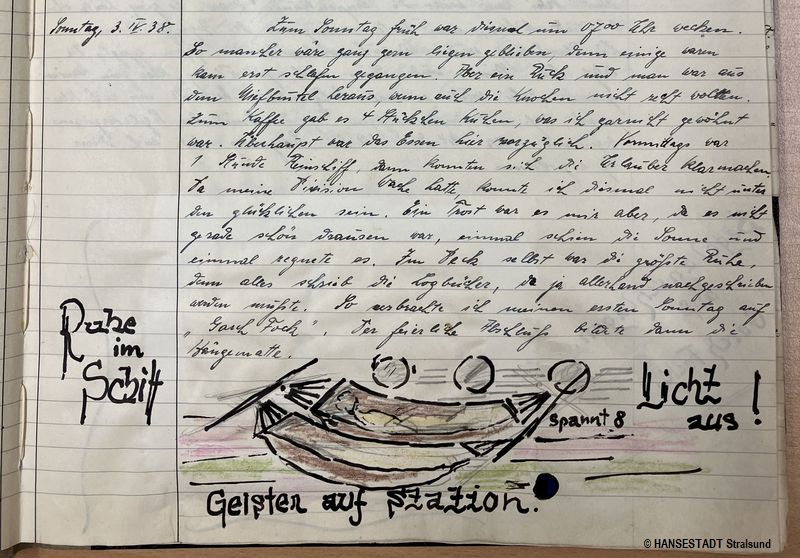 Sonntag, 3. IV. 38.
Zum Sonntag früh war diesmal um 0700 Uhr wecken.
So mancher wäre ganz gern liegen geblieben, denn einige waren
kam erst schlafen gegangen. Aber ein Ruck und man war aus
dem Miefbeutel heraus, wenn auch die Knochen nicht recht wollten.
Zum Kaffee gab es 4 Stückchen Kuchen, was ich garnicht gewöhnt
war. Überhaupt war das Essen hier vorzüglich. Vormittags war
1 Stunde Reinschiff, dann konnten sich die Urlauber klarmachen.
Da meine Division Wache hatte konnte ich diesmal nicht unter
den glücklichen sein. Ein Trost war es mir aber, da es nicht
gerade schön drausen war, einmal schien die Sonne und
einmal regnete es. Im Deck selbst war die größte Ruhe,
denn alles schrieb die Logbücher, da ja allerhand nachgeschrieben
werden mußte. So verbrachte ich meinen ersten Sonntag auf
„Gorch Fock". Der feierliche Abschluß bildete dann die
Hängematte.
Ruhe
im
Schiff
Licht
aus !
spannt 8
Geister auf Station.
© HANSESTADT Stralsund